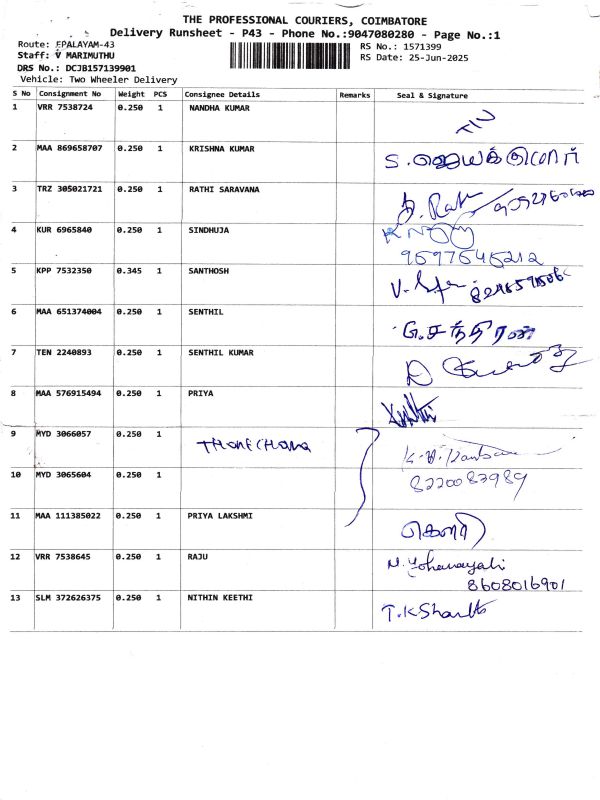 THE PROFESSIONAL COURIERS, COIMBATORE
Delivery Runsheet - P43 - Phone No.:9047080280 - Page No.:1
Route: EPALAYAM-43
RS No.: 1571399
Staff: V MARIMUTHU
RS Date: 25-Jun-2025
DRS No.: DCJB157139901
Vehicle: Two Wheeler Delivery
S No Consignment No Weight PCS Consignee Details Remarks Seal & Signature
1 VRR 7538724 0.250 1 NANDHA KUMAR
2 MAA 869658707 0.250 1 KRISHNA KUMAR
3 TRZ 305021721 0.250 1 RATHI SARAVANA
4 KUR 6965840 0.250 1 SINDHUJA
9597545212
5 KPP 7532350 0.345 1 SANTHOSH
6 MAA 651374004 0.250 1 SENTHIL
7 TEN 2240893 0.250 1 SENTHIL KUMAR
8 MAA 576915494 0.250 1 PRIYA
9 MYD 3066057 0.250 1
10 MYD 3065604 0.250 1 8220083989
11 MAA 111385022 0.250 1 PRIYA LAKSHMI
12 VRR 7538645 0.250 1 RAJU
8608016901
13 SLM 372626375 0.250 1 NITHIN KEETHI